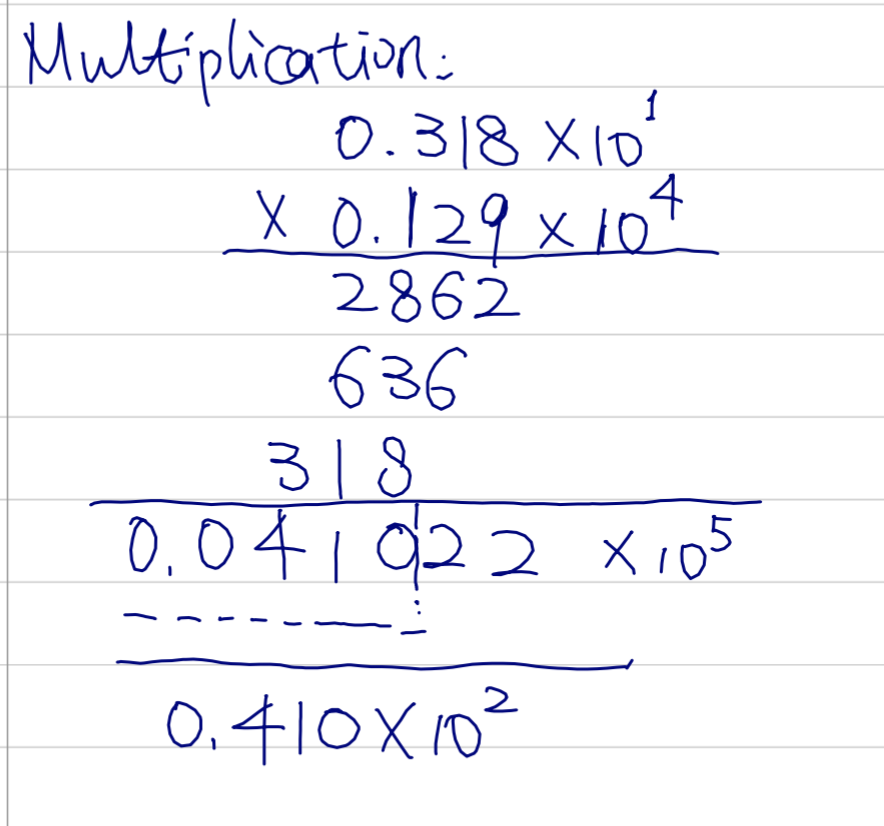 Multiplication:
0.318 × 10¹
× 0.129 × 10⁴
2862
636
318
0.041022 × 10⁵
0.410 × 10²